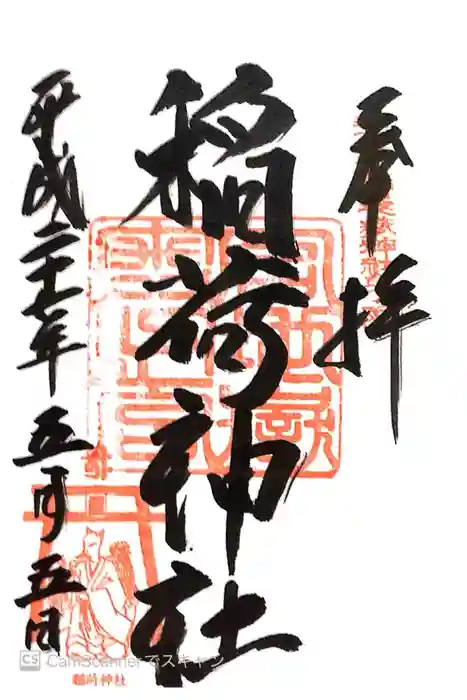 奉拝
稲荷神社
平成二十七年五月五日
稲荷神社
CS CamScannerでスキャン